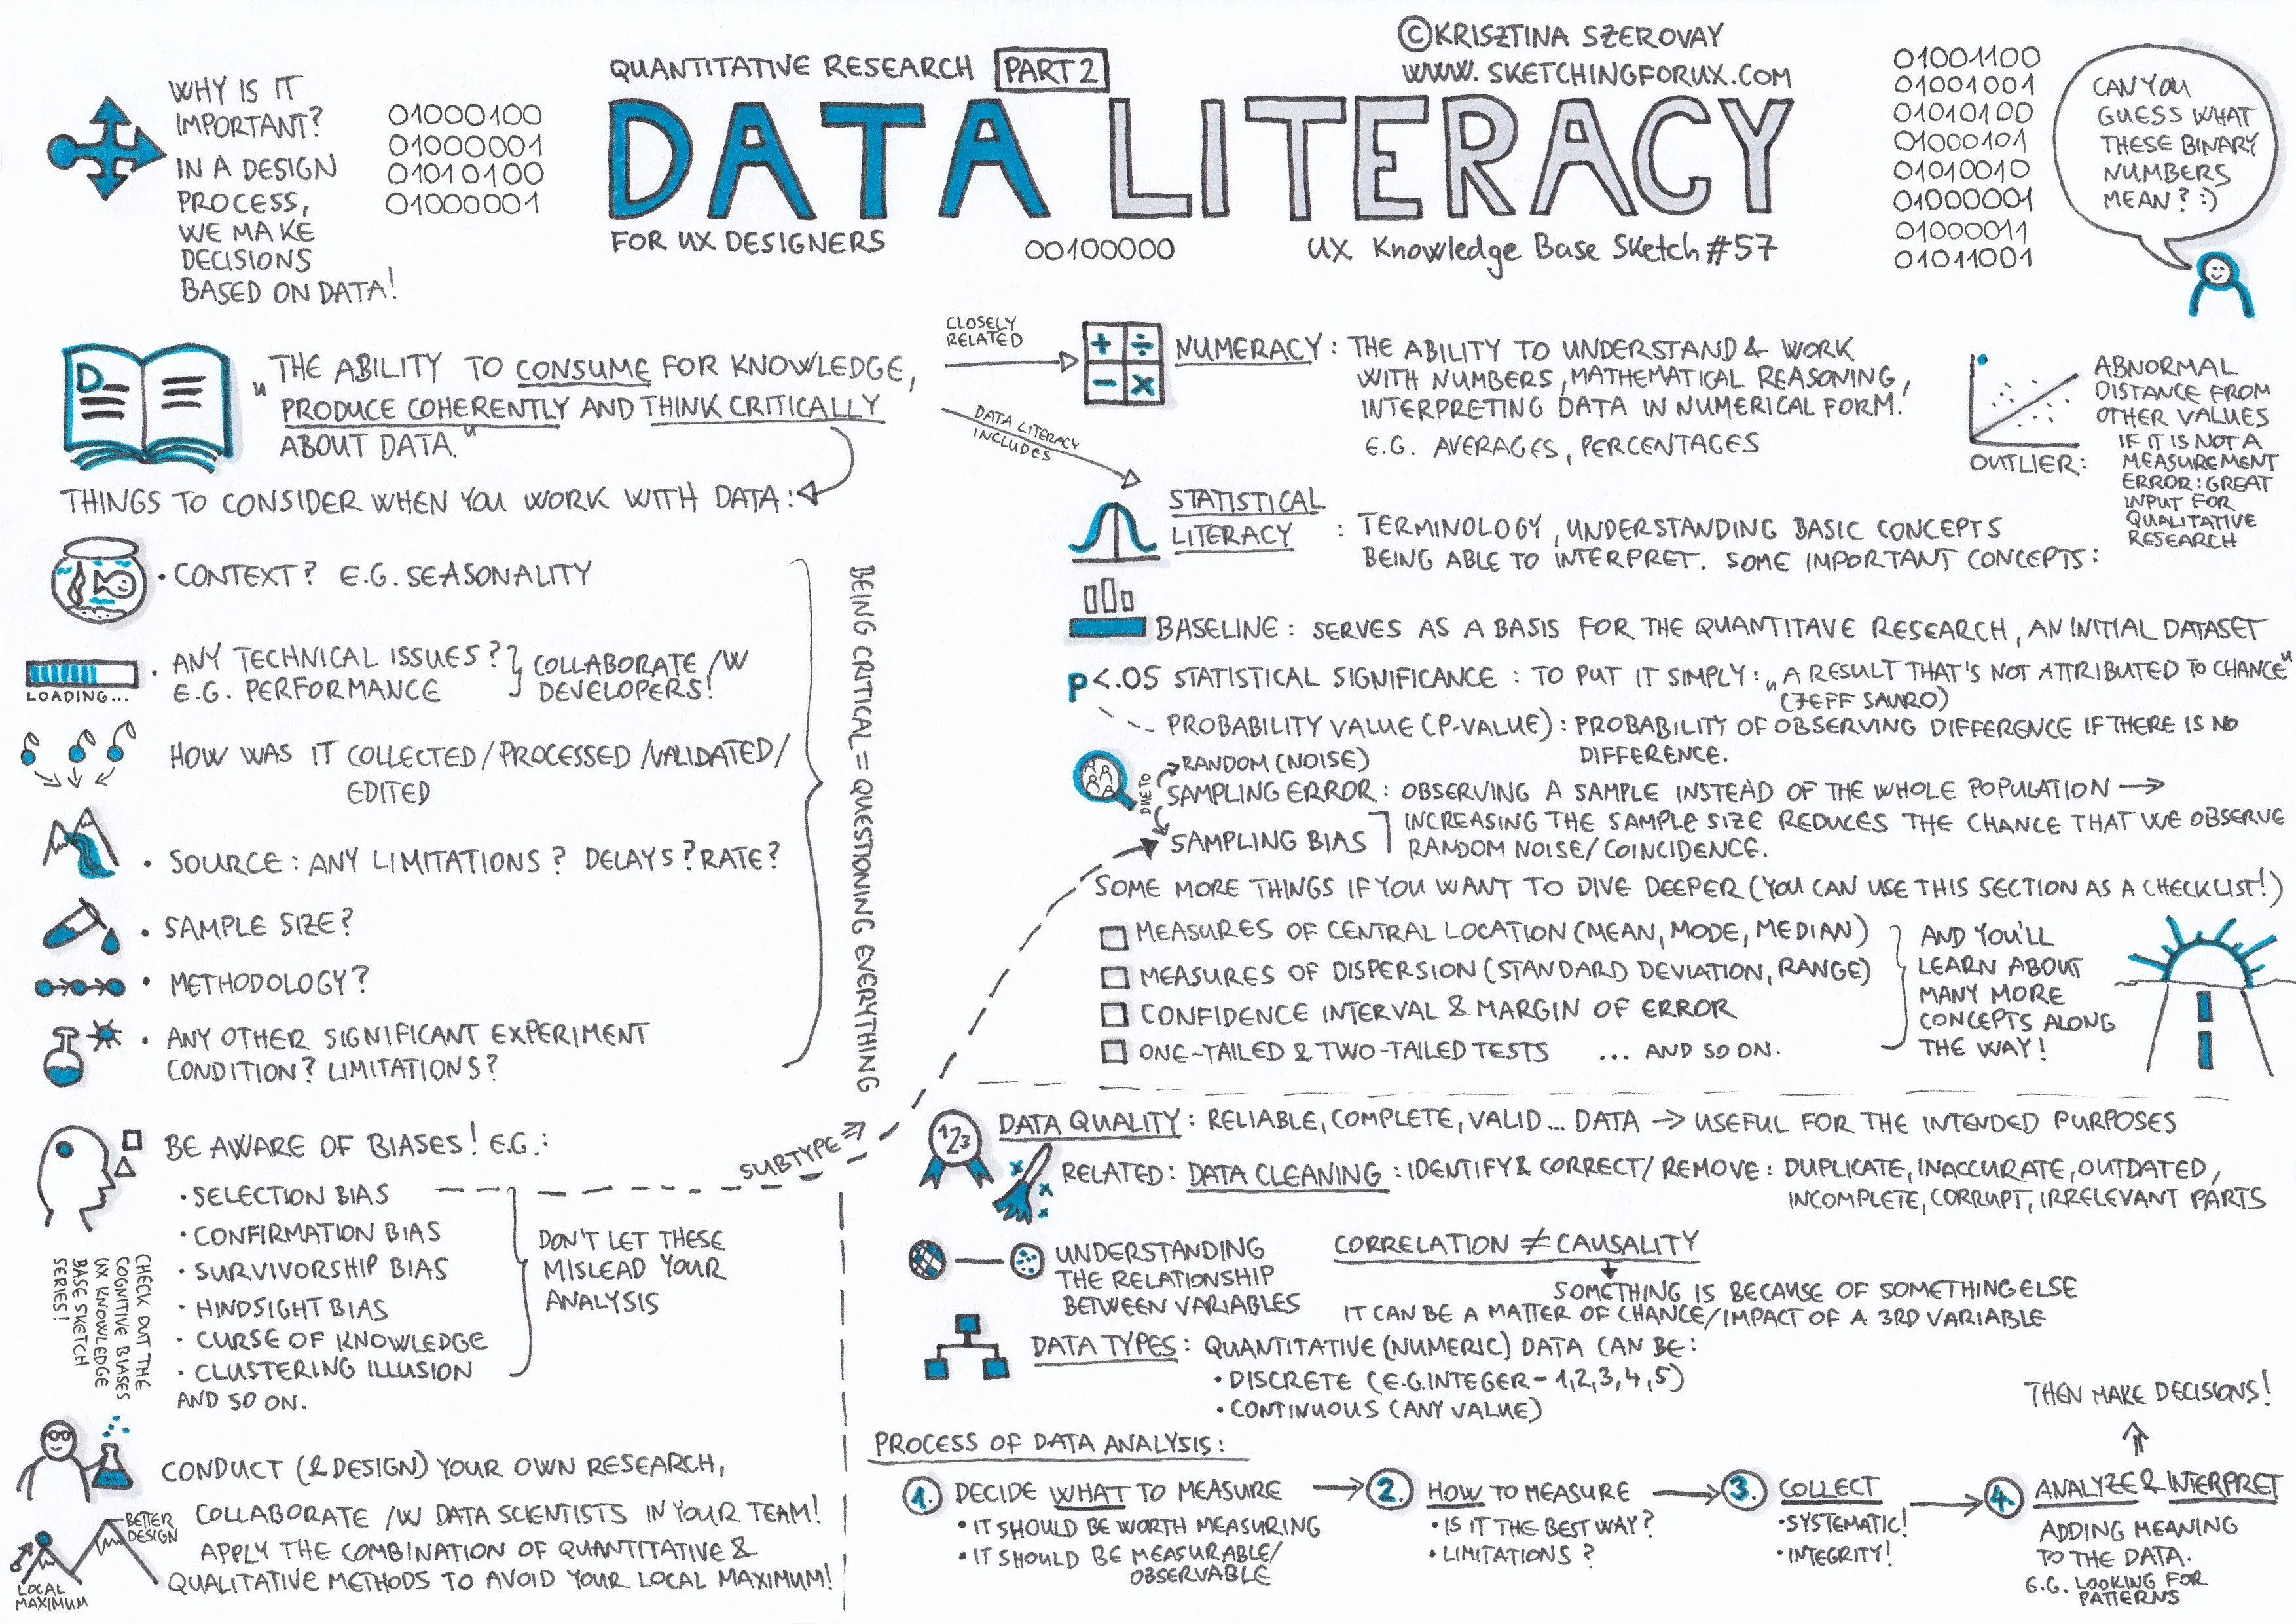 QUANTITATIVE RESEARCH PART 2
©KRISZTINA SZEROVAY
WWW.SKETCHINGFORUX.COM
DATA LITERACY
FOR UX DESIGNERS
00100000
UX Knowledge Base Sketch #57
WHY IS IT
IMPORTANT?
IN A DESIGN
PROCESS,
WE MAKE
DECISIONS
BASED ON DATA!
01000100
01000001
01010100
01000001
01001100
01001001
01010100
01000101
01010010
01000001
01000011
01011001
CAN YOU
GUESS WHAT
THESE BINARY
NUMBERS
MEAN? :)
D
"THE ABILITY TO CONSUME FOR KNOWLEDGE,
PRODUCE COHERENTLY AND THINK CRITICALLY
ABOUT DATA."
THINGS TO CONSIDER WHEN YOU WORK WITH DATA:
• CONTEXT? E.G. SEASONALITY
LOADING...
• ANY TECHNICAL ISSUES?
E.G. PERFORMANCE
COLLABORATE /W
DEVELOPERS!
HOW WAS IT COLLECTED/PROCESSED/VALIDATED/
EDITED
• SOURCE: ANY LIMITATIONS? DELAYS? RATE?
• SAMPLE SIZE?
• METHODOLOGY?
• ANY OTHER SIGNIFICANT EXPERIMENT
CONDITION? LIMITATIONS?
BEING CRITICAL = QUESTIONING EVERYTHING
BE AWARE OF BIASES! E.G.:
• SELECTION BIAS
• CONFIRMATION BIAS
• SURVIVORSHIP BIAS
• HINDSIGHT BIAS
• CURSE OF KNOWLEDGE
• CLUSTERING ILLUSION
AND SO ON.
DON'T LET THESE
MISLEAD YOUR
ANALYSIS
SUBTYPE
CHECK OUT THE
COGNITIVE BIASES
UX KNOWLEDGE
BASE SKETCH
SERIES!
CONDUCT (& DESIGN) YOUR OWN RESEARCH,
COLLABORATE /W DATA SCIENTISTS IN YOUR TEAM!
APPLY THE COMBINATION OF QUANTITATIVE &
QUALITATIVE METHODS TO AVOID YOUR LOCAL MAXIMUM!
BETTER
DESIGN
LOCAL
MAXIMUM
CLOSELY
RELATED
+ ÷
- x
NUMERACY: THE ABILITY TO UNDERSTAND & WORK
WITH NUMBERS, MATHEMATICAL REASONING,
INTERPRETING DATA IN NUMERICAL FORM.
E.G. AVERAGES, PERCENTAGES
DATA LITERACY
INCLUDES
OUTLIER:
ABNORMAL
DISTANCE FROM
OTHER VALUES
IF IT IS NOT A
MEASUREMENT
ERROR: GREAT
INPUT FOR
QUALITATIVE
RESEARCH
STATISTICAL
LITERACY
: TERMINOLOGY, UNDERSTANDING BASIC CONCEPTS
BEING ABLE TO INTERPRET. SOME IMPORTANT CONCEPTS:
BASELINE: SERVES AS A BASIS FOR THE QUANTITAVE RESEARCH, AN INITIAL DATASET
p<.05 STATISTICAL SIGNIFICANCE: TO PUT IT SIMPLY: "A RESULT THAT'S NOT ATTRIBUTED TO CHANCE"
(JEFF SAURO)
PROBABILITY VALUE (P-VALUE): PROBABILITY OF OBSERVING DIFFERENCE IF THERE IS NO
DIFFERENCE.
DUE TO
RANDOM (NOISE)
SAMPLING ERROR: OBSERVING A SAMPLE INSTEAD OF THE WHOLE POPULATION →
SAMPLING BIAS
INCREASING THE SAMPLE SIZE REDUCES THE CHANCE THAT WE OBSERVE
RANDOM NOISE/COINCIDENCE.
SOME MORE THINGS IF YOU WANT TO DIVE DEEPER (YOU CAN USE THIS SECTION AS A CHECKLIST!)
MEASURES OF CENTRAL LOCATION (MEAN, MODE, MEDIAN)
MEASURES OF DISPERSION (STANDARD DEVIATION, RANGE)
CONFIDENCE INTERVAL & MARGIN OF ERROR
ONE-TAILED & TWO-TAILED TESTS ... AND SO ON.
AND YOU'LL
LEARN ABOUT
MANY MORE
CONCEPTS ALONG
THE WAY!
123
DATA QUALITY: RELIABLE, COMPLETE, VALID... DATA → USEFUL FOR THE INTENDED PURPOSES
RELATED: DATA CLEANING: IDENTIFY & CORRECT/REMOVE: DUPLICATE, INACCURATE, OUTDATED,
INCOMPLETE, CORRUPT, IRRELEVANT PARTS
UNDERSTANDING
THE RELATIONSHIP
BETWEEN VARIABLES
CORRELATION ≠ CAUSALITY
SOMETHING IS BECAUSE OF SOMETHING ELSE
IT CAN BE A MATTER OF CHANCE/IMPACT OF A 3RD VARIABLE
DATA TYPES: QUANTITATIVE (NUMERIC) DATA CAN BE:
• DISCRETE (E.G. INTEGER - 1,2,3,4,5)
• CONTINUOUS (ANY VALUE)
PROCESS OF DATA ANALYSIS:
1. DECIDE WHAT TO MEASURE
• IT SHOULD BE WORTH MEASURING
• IT SHOULD BE MEASURABLE/
OBSERVABLE
2. HOW TO MEASURE
• IS IT THE BEST WAY?
• LIMITATIONS?
3. COLLECT
• SYSTEMATIC!
• INTEGRITY!
4. ANALYZE & INTERPRET
ADDING MEANING
TO THE DATA.
E.G. LOOKING FOR
PATTERNS
THEN MAKE DECISIONS!